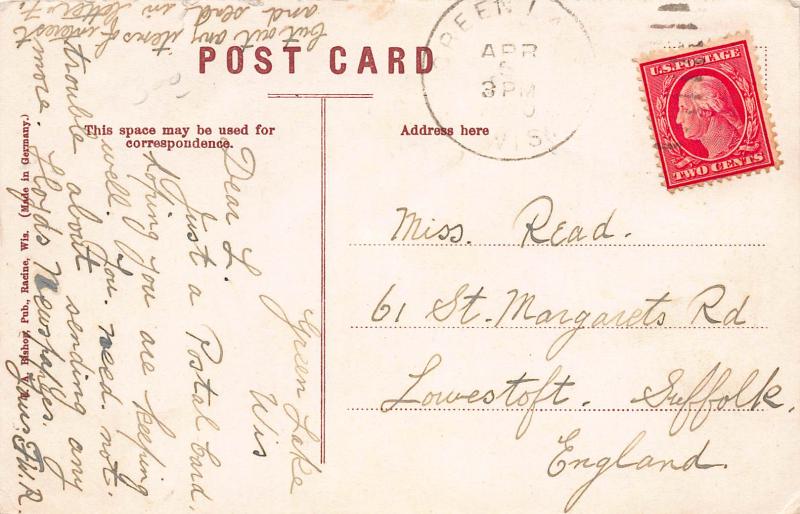 POST CARD
This space may be used for
correspondence.
Address here
GREEN LA
APR
3 PM
WIS
U.S. POSTAGE
TWO CENTS
Miss. Read.
61 St. Margarets Rd
Lowestoft. Suffolk.
England.
Green Lake
Wis
Dear L.
Just a Postal Card.
hoping you are keeping
well. You. need. not.
trouble about sending any
more. Lloyds Newspapers.
but cut any items of interest
and send in letter.
Yours. F.W.R.
A. Bishop, Pub., Racine, Wis. (Made in Germany.)